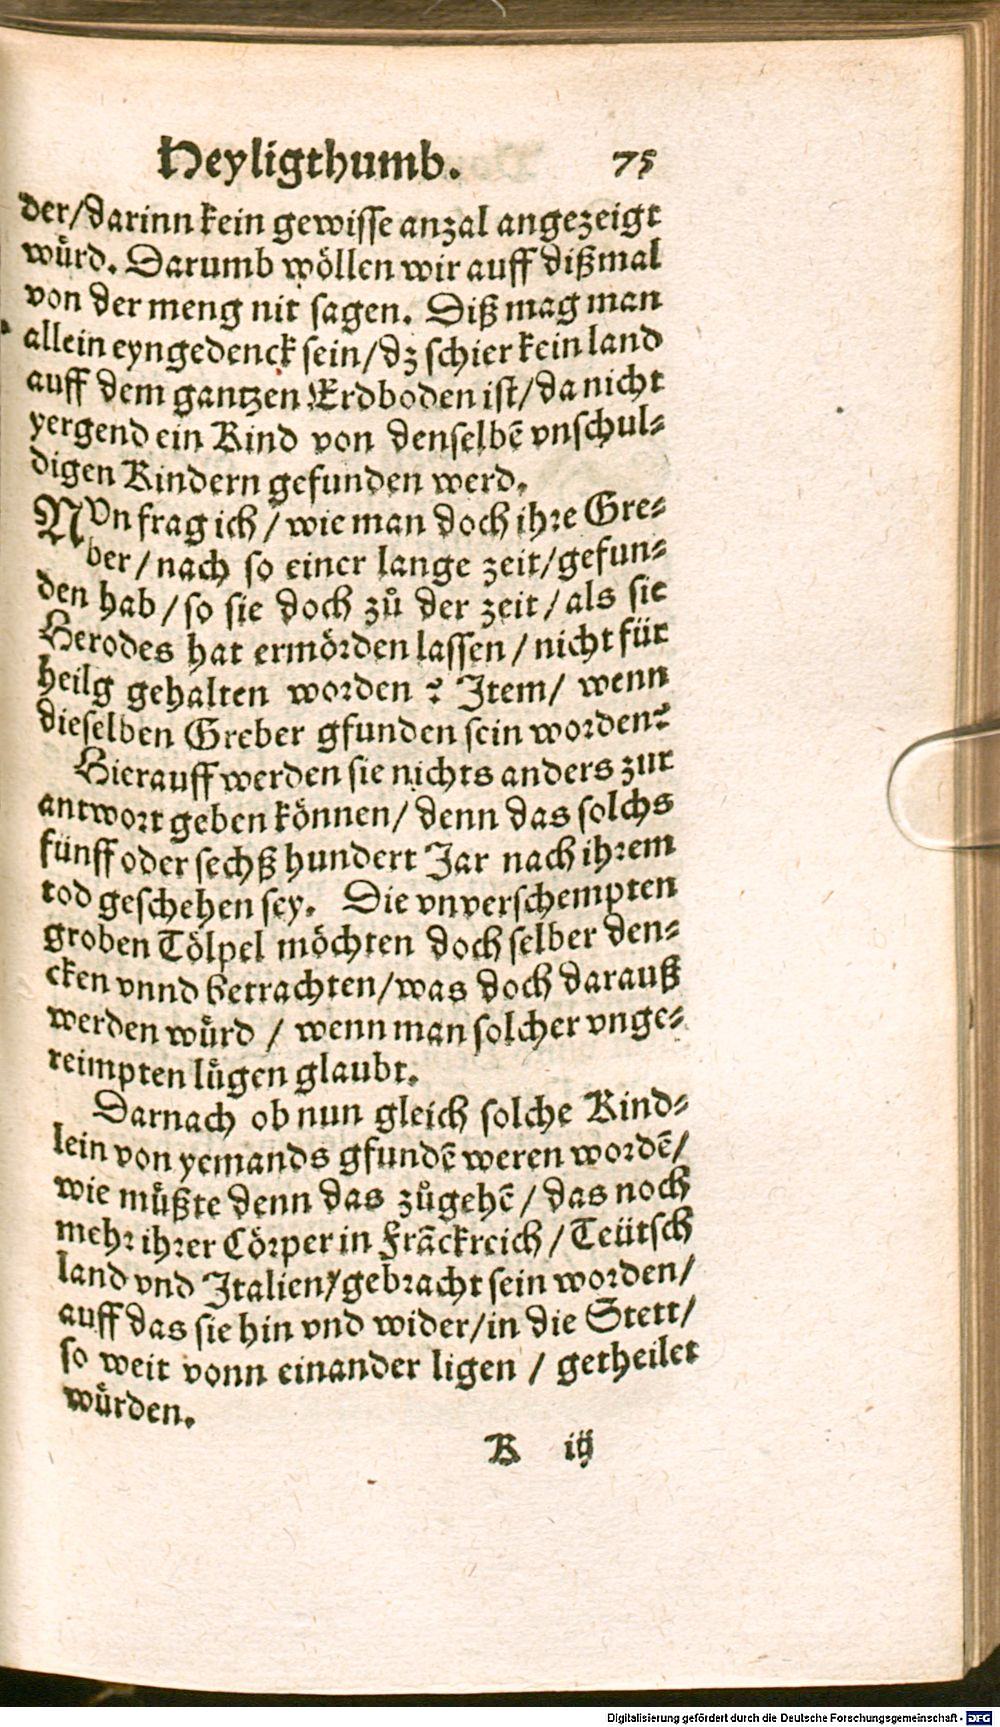 Heyligthumb. 75
der/darinn kein gewisse anzal angezeigt
wuͤrd. Darumb woͤllen wir auff dißmal
von der meng nit sagen. Diß mag man
allein eyngedenck sein/dz schier kein land
auff dem gantzen Erdboden ist/da nicht
yergend ein Kind von denselbē vnschul-
digen Kindern gefunden werd.
NVn frag ich/wie man doch ihre Gre-
ber/nach so einer lange zeit/gefun-
den hab/so sie doch zuͦ der zeit/als sie
Herodes hat ermoͤrden lassen/nicht fuͤr
heilg gehalten worden? Item/ wenn
dieselben Greber gfunden sein worden?
Hierauff werden sie nichts anders zur
antwort geben koͤnnen/denn das solchs
fuͤnff oder sechß hundert Jar nach ihrem
tod geschehen sey. Die vnverschempten
groben Toͤlpel moͤchten doch selber den-
cken vnnd betrachten/was doch darauß
werden wuͤrd / wenn man solcher vnge-
reimpten luͤgen glaubt.
Darnach ob nun gleich solche Kind-
lein von yemands gfundē weren wordē/
wie muͤßte denn das zuͦgehē/das noch
mehr ihrer Coͤrper in Frāckreich/Teuͤtsch
land vnd Italien/gebracht sein worden/
auff das sie hin vnd wider/in die Stett/
so weit vonn einander ligen / getheilet
wuͤrden.
K iij
Digitalisierung gefördert durch die Deutsche Forschungsgemeinschaft - DFG